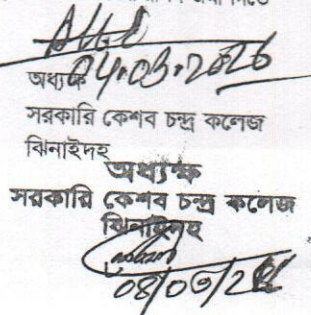 04.03.2026
অধ্যক্ষ
সরকারি কেশব চন্দ্র কলেজ
ঝিনাইদহ
অধ্যক্ষ
সরকারি কেশব চন্দ্র কলেজ
ঝিনাইদহ